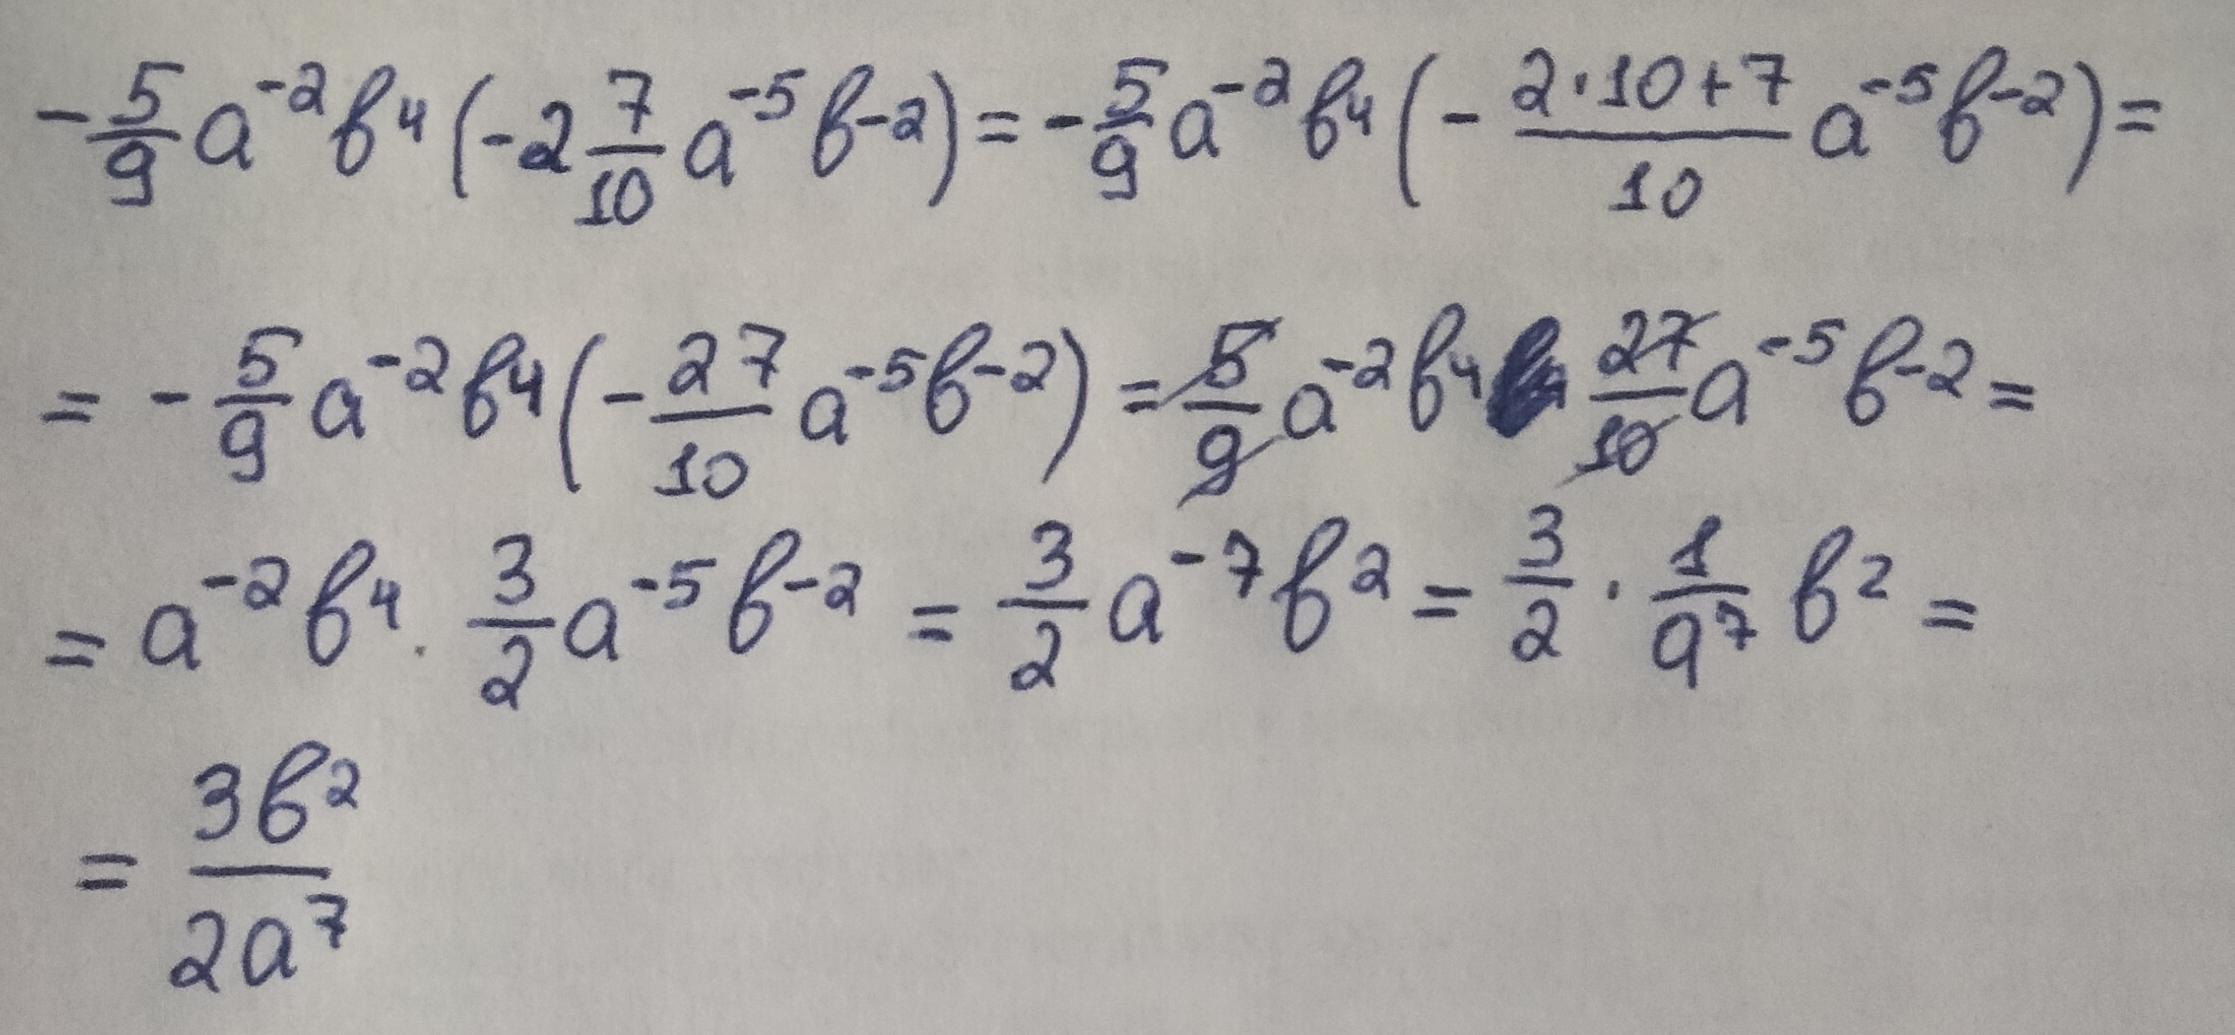 -5/9 a⁻²b⁴(-2 7/10 a⁻⁵b⁻²) = -5/9 a⁻²b⁴(- (2·10+7)/10 a⁻⁵b⁻²) =
= -5/9 a⁻²b⁴(-27/10 a⁻⁵b⁻²) = 5/9 a⁻²b⁴ 27/10 a⁻⁵b⁻² =
= a⁻²b⁴ · 3/2 a⁻⁵b⁻² = 3/2 a⁻⁷b² = 3/2 · 1/a⁷ b² =
= 3b²/2a⁷